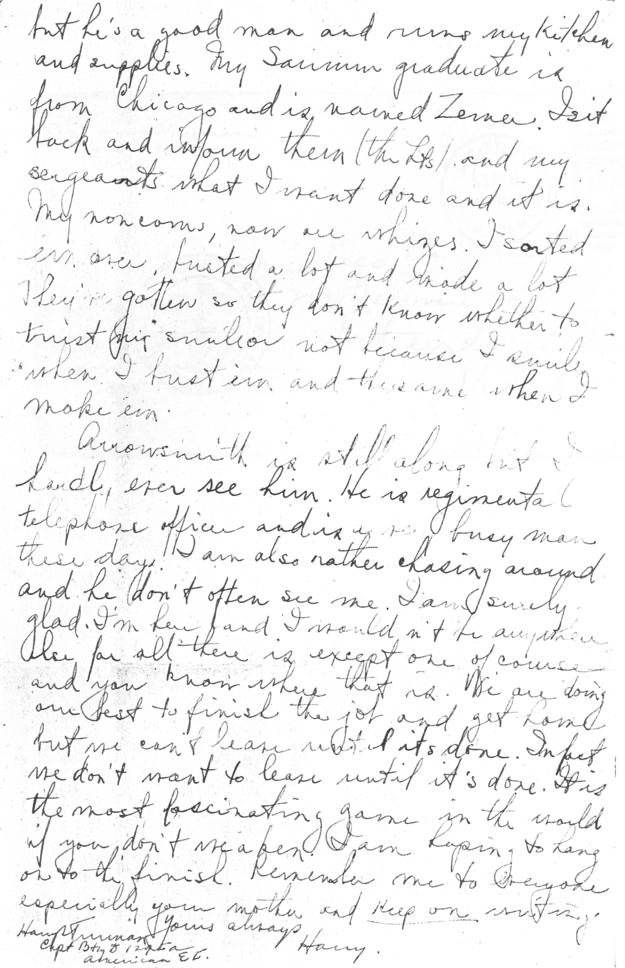 but he's a good man and runs my kitchen
and supplies. My Saumur graduate is
from Chicago and is named Zemer. I sit
back and inform them (the Lts) and my
sergeants what I want done and it is.
My noncoms, now are whizes. I sorted
em over, busted a lot and made a lot
They've gotten so they don't know whether to
trust my smile or not because I smile
when I bust em and the same when I
make em.
Arrowsmith is still along but I
hardly ever see him. He is regimental
telephone officer and is a busy man
these days. I am also rather chasing around
and he don't often see me. I am surely
glad I'm here and I wouldn't be anywhere
else for all there is except one of course
and you know where that is. We are doing
our best to finish the job and get home
but we can't leave until its done. In fact
we don't want to leave until it's done. It is
the most fascinating game in the world
if you don't weaken. I am hoping to hang
on to the finish. Remember me to everyone
especially your mother and keep on writing.
Yours always
Harry.
Harry S Truman
Capt Bty D 129 FA
American E.F.